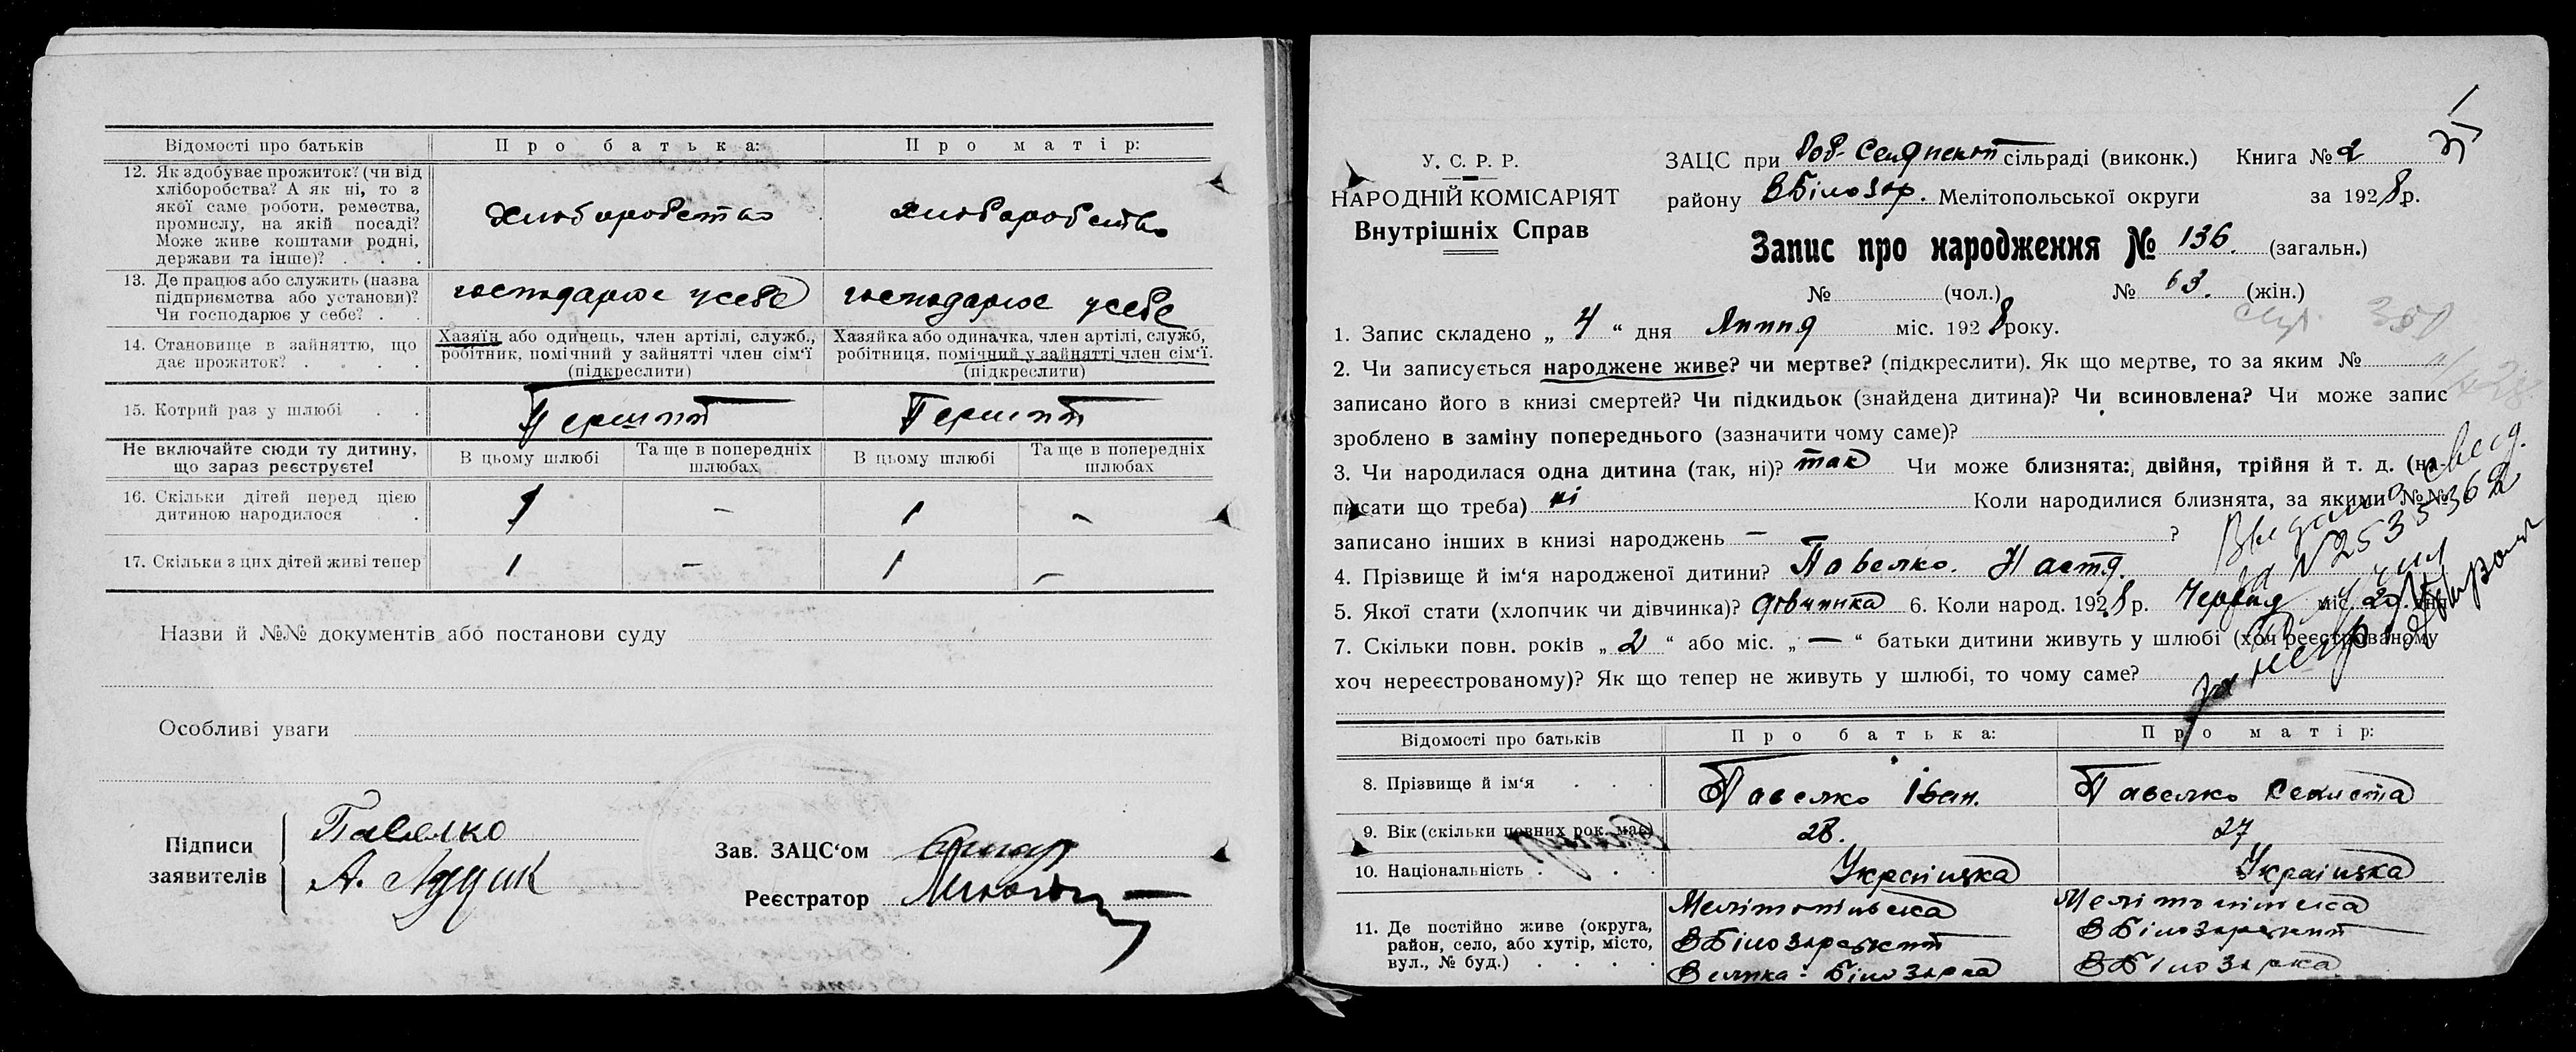 Відомості про батьків
Про батька:
Про матір:
12. Як здобуває прожиток? (чи від
хліборобства? А як ні, то з
якої саме роботи, ремества,
промислу, на якій посаді?
Може живе коштами родні,
держави та інше)? . . .
хліборобство
хліборобство
13. Де працює або служить (назва
підприємства або установи)?
Чи господарює у себе? . .
господарює усебе
господарює усебе
14. Становище в зайняттю, що
дає прожиток? . . . .
Хазяїн або одинець, член артілі, служб.,
робітник, помічний у зайнятті член сім'ї
(підкреслити)
Хазяйка або одиначка, член артілі, служб,
робітниця, помічний у зайнятті член сім'ї.
(підкреслити)
15. Котрий раз у шлюбі . .
Перший
Перший
Не включайте сюди ту дитину,
що зараз реєструєте!
В цьому шлюбі
Та ще в попередніх
шлюбах
В цьому шлюбі
Та ще в попередніх
шлюбах
16. Скільки дітей перед цією
дитиною народилося .
1 – 1 –
17. Скільки з цих дітей живі тепер
1 – 1 –
Назви й №№ документів або постанови суду
Особливі уваги
Підписи
заявителів
Павелко
А.
Зав. ЗАЦС'ом
Реєстратор
У. С. Р. Р.
НАРОДНІЙ КОМІСАРІЯТ
Внутрішніх Справ
ЗАЦС при сільраді (виконк.) Книга № 2
району ВБілозер. Мелітопольської округи за 1928 р.
Запис про народження № 136. (загальн.)
№ (чол.) № 63. (жін.)
1. Запис складено „ 4 “ дня Липня міс. 1928 року.
2. Чи записується народжене живе? чи мертве? (підкреслити). Як що мертве, то за яким №
записано його в книзі смертей? Чи підкидьок (знайдена дитина)? Чи всиновлена? Чи може запис
зроблено в заміну попереднього (зазначити чому саме)?
3. Чи народилася одна дитина (так, ні)? так Чи може близнята: двійня, трійня й т. д. (на-
писати що треба) ні Коли народилися близнята, за якими №№
записано інших в книзі народжень – ?
4. Прізвище й ім'я народженої дитини? Павелко. Настя.
5. Якої стати (хлопчик чи дівчинка)? дівчинка 6. Коли народ. 1928 р. Червня міс. 29. дня
7. Скільки повн. років „ 2 “ або міс. „ — “ батьки дитини живуть у шлюбі (хоч реєстрованому
хоч нереєстрованому)? Як що тепер не живуть у шлюбі, то чому саме?
Відомості про батьків
Про батька:
Про матір:
8. Прізвище й ім'я . . .
Павелко Іван.
Павелко Секлета
9. Вік (скільки повних рок. має)
28.
27
10. Національність . . .
Украіицка
Украіицка
11. Де постійно живе (округа,
район, село, або хутір, місто,
вул., № буд.) . . . .
Мелітопільска
ВБілозерский
Велика-Білозерка
Мелітопільска
ВБілозерский
ВБілозерка